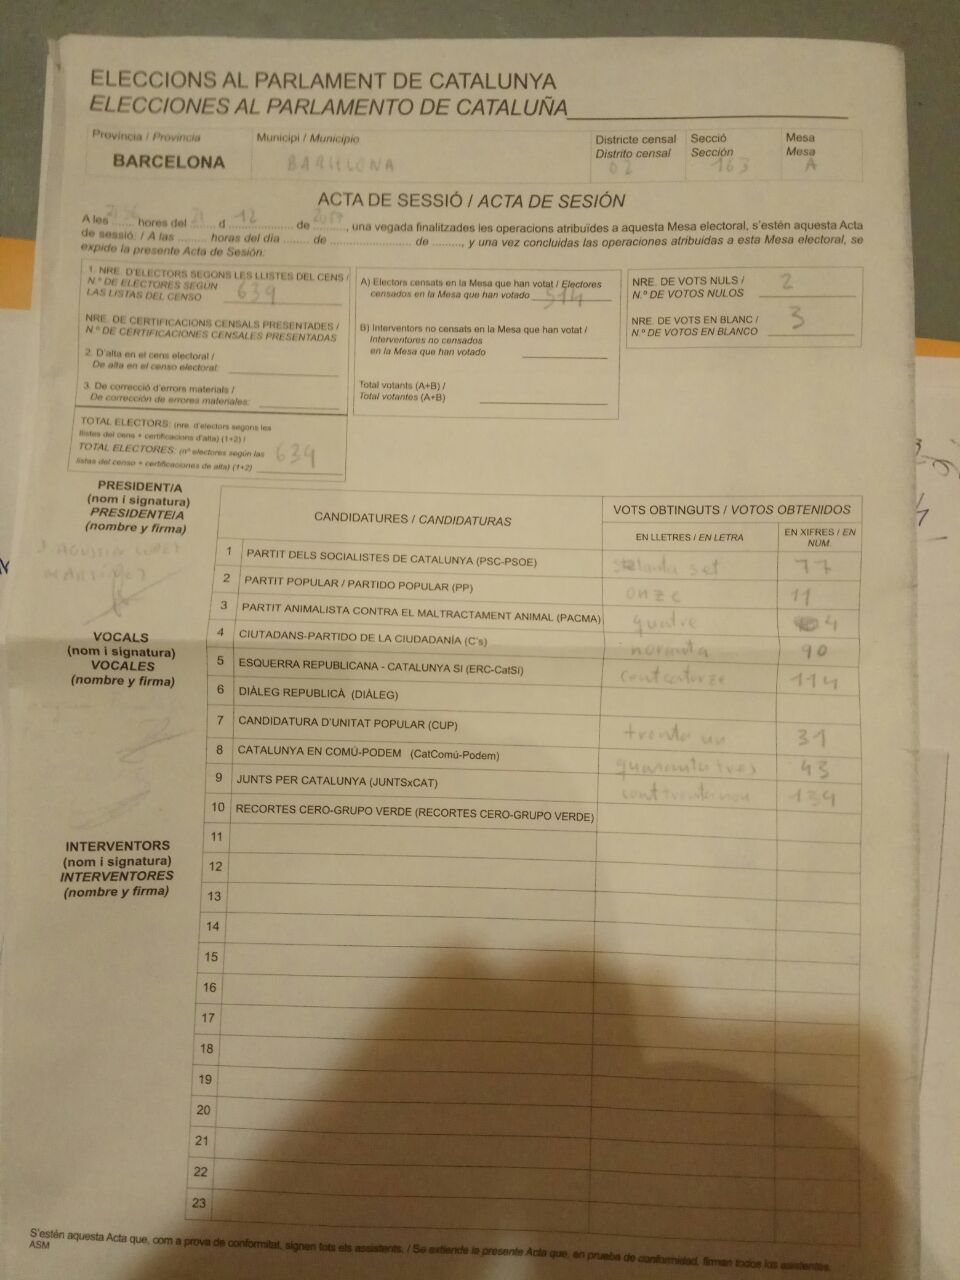 ELECCIONS AL PARLAMENT DE CATALUNYA
ELECCIONES AL PARLAMENTO DE CATALUÑA
Província / Provincia
BARCELONA
Municipi / Municipio
BARCELONA
Districte censal
Distrito censal
02
Secció
Sección
163
Mesa
Mesa
A
ACTA DE SESSIÓ / ACTA DE SESIÓN
A les ........ hores del 21 d 12 de 2017, una vegada finalitzades les operacions atribuïdes a aquesta Mesa electoral, s'estén aquesta Acta
de sessió. / A las ........ horas del día ........ de ........ de ........, y una vez concluidas las operaciones atribuidas a esta Mesa electoral, se
expide la presente Acta de Sesión.
1. NRE. D'ELECTORS SEGONS LES LLISTES DEL CENS /
N.º DE ELECTORES SEGÚN
LAS LISTAS DEL CENSO 639
NRE. DE CERTIFICACIONS CENSALS PRESENTADES /
N.º DE CERTIFICACIONES CENSALES PRESENTADAS
2. D'alta en el cens electoral /
De alta en el censo electoral:
3. De correcció d'errors materials /
De corrección de errores materiales:
TOTAL ELECTORS: (nre. d'electors segons les
llistes del cens + certificacions d'alta) (1+2) /
TOTAL ELECTORES: (nº electores según las
listas del censo + certificaciones de alta) (1+2) 639
A) Electors censats en la Mesa que han votat / Electores
censados en la Mesa que han votado 514
B) Interventors no censats en la Mesa que han votat /
Interventores no censados
en la Mesa que han votado
Total votants (A+B) /
Total votantes (A+B)
NRE. DE VOTS NULS /
N.º DE VOTOS NULOS 2
NRE. DE VOTS EN BLANC /
N.º DE VOTOS EN BLANCO 3
PRESIDENT/A
(nom i signatura)
PRESIDENTE/A
(nombre y firma)
VOCALS
(nom i signatura)
VOCALES
(nombre y firma)
INTERVENTORS
(nom i signatura)
INTERVENTORES
(nombre y firma)
CANDIDATURES / CANDIDATURAS
VOTS OBTINGUTS / VOTOS OBTENIDOS
EN LLETRES / EN LETRA
EN XIFRES / EN
NÚM.
1 PARTIT DELS SOCIALISTES DE CATALUNYA (PSC-PSOE) setanta set 77
2 PARTIT POPULAR / PARTIDO POPULAR (PP) onze 11
3 PARTIT ANIMALISTA CONTRA EL MALTRACTAMENT ANIMAL (PACMA) quatre 4
4 CIUTADANS-PARTIDO DE LA CIUDADANÍA (C's) noranta 90
5 ESQUERRA REPUBLICANA - CATALUNYA SÍ (ERC-CatSí) cent catorze 114
6 DIÀLEG REPUBLICÀ (DIÀLEG)
7 CANDIDATURA D'UNITAT POPULAR (CUP) trenta un 31
8 CATALUNYA EN COMÚ-PODEM (CatComú-Podem) quaranta tres 43
9 JUNTS PER CATALUNYA (JUNTSxCAT) cent trenta nou 139
10 RECORTES CERO-GRUPO VERDE (RECORTES CERO-GRUPO VERDE)
11
12
13
14
15
16
17
18
19
20
21
22
23
S'estén aquesta Acta que, com a prova de conformitat, signen tots els assistents. / Se extiende la presente Acta que, en prueba de conformidad, firman todos los asistentes.
ASM